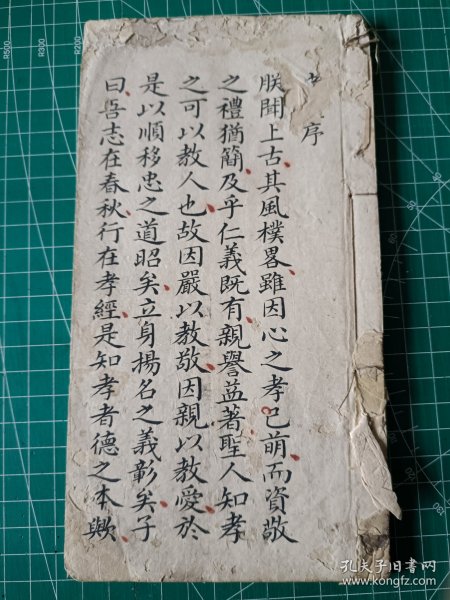 序
朕聞上古其風樸畧雖因心之孝已萌而資敬
之禮猶簡及乎仁義既有親譽益著聖人知孝
之可以教人也故因嚴以教敬因親以教愛於
是以順移忠之道昭矣立身揚名之義彰矣子
曰吾志在春秋行在孝經是知孝者德之本歟
孔夫子旧书网
www.kongfz.com